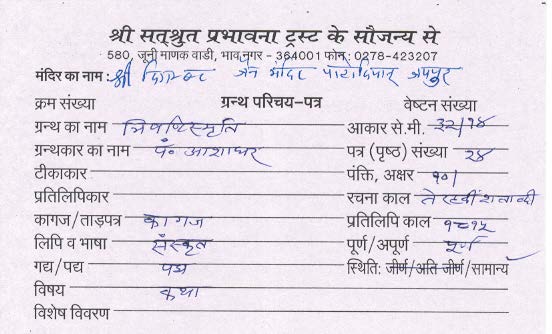 श्री सत्श्रुत प्रभावना ट्रस्ट के सौजन्य से
580, जूनी माणक वाडी, भावनगर - 364001 फोन : 0278-423207
मंदिर का नाम : श्री दिगम्बर जैन मंदिर पाटोदियान् जयपुर
क्रम संख्या ग्रन्थ परिचय-पत्र वेष्टन संख्या
ग्रन्थ का नाम त्रिषष्टिस्मृति आकार से.मी. ३२/१४
ग्रन्थकार का नाम पं. आशाधर पत्र (पृष्ठ) संख्या २४
टीकाकार पंक्ति, अक्षर १०/
प्रतिलिपिकार रचना काल तेरहवीं शताब्दी
कागज/ताड़पत्र कागज प्रतिलिपि काल १८१५
लिपि व भाषा संस्कृत पूर्ण/अपूर्ण पूर्ण
गद्य/पद्य पद्य स्थिति: जीर्ण/अति जीर्ण/सामान्य
विषय कथा
विशेष विवरण